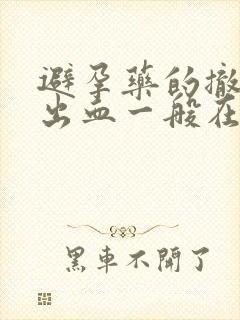 避孕藥的撤
出血一般在
黑車不開了